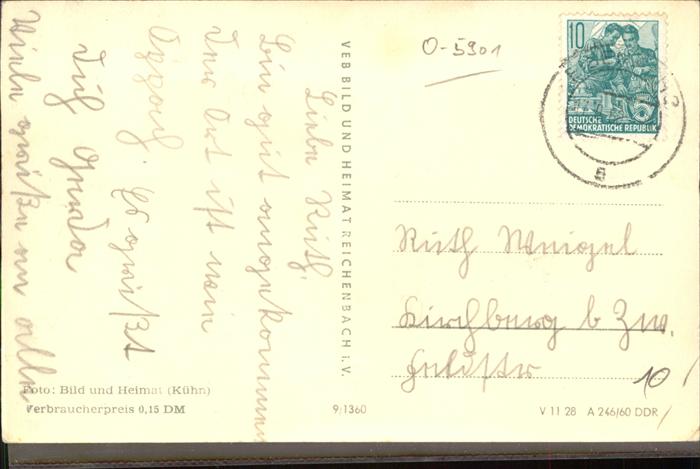 Liebe Ruth,
Bin gut angekommen
Der Ort ist wie
Es grüßt
Dich
Viele Grüße an alle
VEB BILD UND HEIMAT REICHENBACH i. V.
O-5901
10
DEUTSCHE
DEMOKRATISCHE REPUBLIK
a
Ruth Weigel
Kirchberg b Zw.
10/
Foto: Bild und Heimat (Kühn)
Verbraucherpreis 0,15 DM
9/1360
V 11 28 A 246/60 DDR